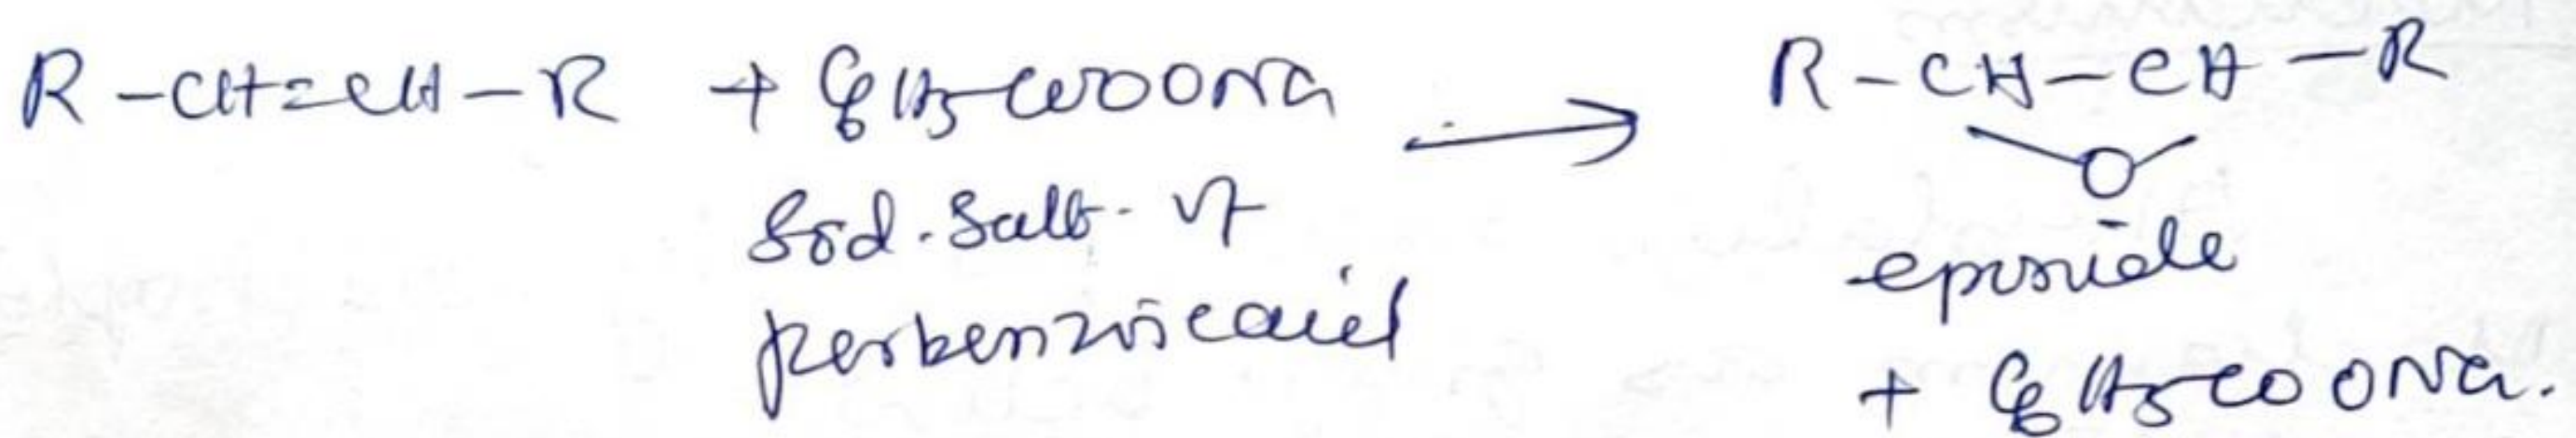 R-CH=CH-R + C6H5COOONa → R-CH-CH-R
O
Sod. Salt of
perbenzoic acid
epoxide
+ C6H5COONa.